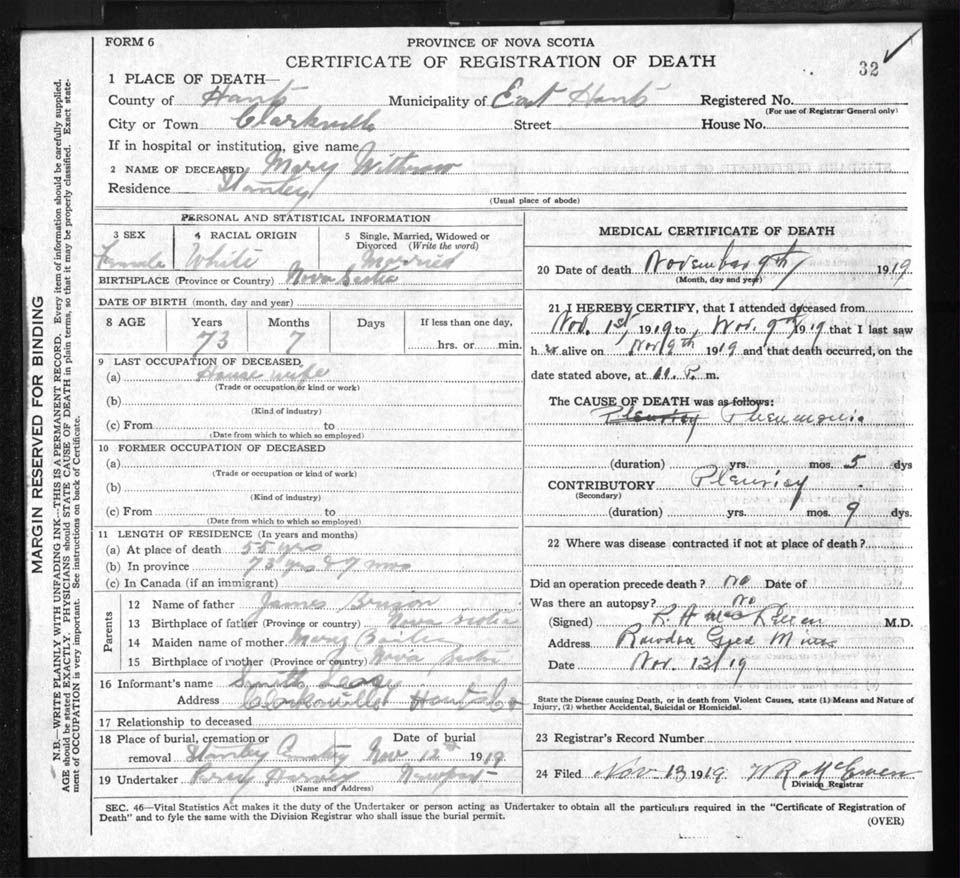 FORM 6
PROVINCE OF NOVA SCOTIA
CERTIFICATE OF REGISTRATION OF DEATH
32
1 PLACE OF DEATH—
County of Hants Municipality of East Hants Registered No.
(For use of Registrar General only)
City or Town Clarksville Street House No.
If in hospital or institution, give name
2 NAME OF DECEASED Mary Withrow
Residence Stanley
(Usual place of abode)
PERSONAL AND STATISTICAL INFORMATION
3 SEX 4 RACIAL ORIGIN 5 Single, Married, Widowed or
Divorced (Write the word)
Female White Married
BIRTHPLACE (Province or Country) Nova Scotia
DATE OF BIRTH (month, day and year)
8 AGE Years Months Days If less than one day,
73 7 hrs. or min.
9 LAST OCCUPATION OF DECEASED
(a) House wife
(Trade or occupation or kind or work)
(b)
(Kind of industry)
(c) From to
(Date from which to which so employed)
10 FORMER OCCUPATION OF DECEASED
(a)
(Trade or occupation or kind of work)
(b)
(Kind of industry)
(c) From to
(Date from which to which so employed)
11 LENGTH OF RESIDENCE (In years and months)
(a) At place of death 55 yrs
(b) In province 73 yrs & 7 mos
(c) In Canada (if an immigrant)
Parents
12 Name of father James
13 Birthplace of father (Province or country) Nova Scotia
14 Maiden name of mother Mary
15 Birthplace of mother (Province or country) Nova Scotia
16 Informant's name Smith
Address Clarksville Hants Co
17 Relationship to deceased
18 Place of burial, cremation or Date of burial
removal Stanley Nov 12th 1919
19 Undertaker Harvey Newport
(Name and Address)
MEDICAL CERTIFICATE OF DEATH
20 Date of death November 9th 1919
(Month, day and year)
21 I HEREBY CERTIFY, that I attended deceased from
Nov. 1st, 1919 to Nov. 9th 1919 that I last saw
her alive on Nov 9th 1919 and that death occurred, on the
date stated above, at P. m.
The CAUSE OF DEATH was as follows:
Pleurisy Pneumonia
(duration) yrs. mos. 5 dys
CONTRIBUTORY Pleurisy
(Secondary)
(duration) yrs. mos. 9 dys.
22 Where was disease contracted if not at place of death?
Did an operation precede death? no Date of
Was there an autopsy? No
(Signed) R. A. M.D.
Address Rawdon Gold Mines
Date Nov. 13/19
State the Disease causing Death, or in death from Violent Causes, state (1) Means and Nature of
Injury, (2) whether Accidental, Suicidal or Homicidal.
23 Registrar's Record Number
24 Filed Nov 13 1919 W R McEwen
Division Registrar
SEC. 46—Vital Statistics Act makes it the duty of the Undertaker or person acting as Undertaker to obtain all the particulars required in the "Certificate of Registration of
Death" and to fyle the same with the Division Registrar who shall issue the burial permit.
(OVER)
MARGIN RESERVED FOR BINDING
N.B.—WRITE PLAINLY WITH UNFADING INK—THIS IS A PERMANENT RECORD. Every item of information should be carefully supplied.
AGE should be stated EXACTLY. PHYSICIANS should STATE CAUSE OF DEATH in plain terms, so that it may be properly classified. Exact state-
ment of OCCUPATION is very important. See instructions on back of Certificate.